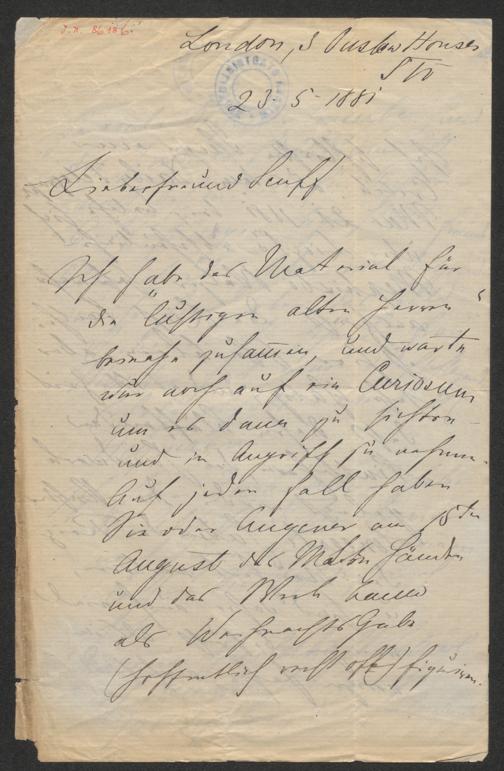 London, 3 Onslow Houses
SW
23-5-1881
Lieber Freund Senff
Ich habe das Material für
die "lustigen alten Herren"
beinahe zusammen, und warte
nur noch auf ein Curiosum
um es dann zu sichten
und in Angriff zu nehmen.
Auf jeden Fall haben
Sie oder Augener am 15ten
August das in Händen
und das Werk kann
als Weihnachts Gabe
(hoffentlich recht oft) figuriren.